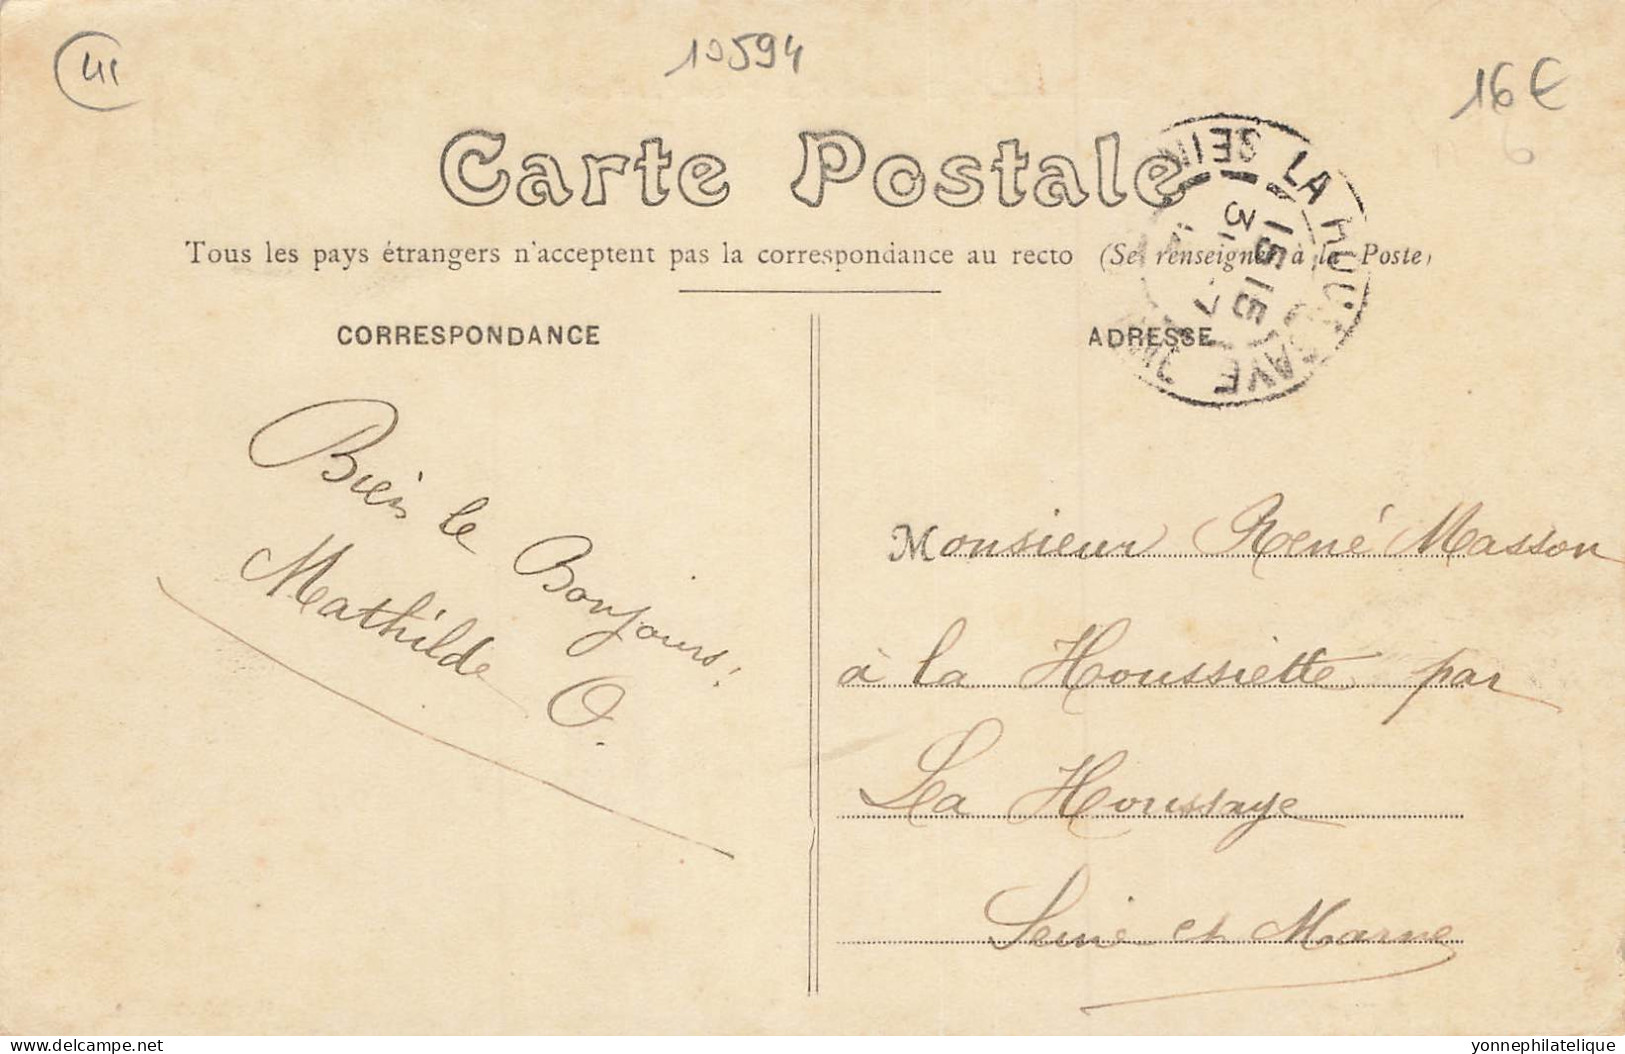 41
10594
16€
6
Carte Postale
Tous les pays étrangers n'acceptent pas la correspondance au recto (Se renseigner à la Poste)
CORRESPONDANCE
ADRESSE
LA HOUSSAYE
SEINE
15 15
3 - 7
Bien le Bonjours!
Mathilde O.
Monsieur René Masson
à la Houssiette par
La Houssaye
Seine et Marne
delcampe.net
yonnephilatelique